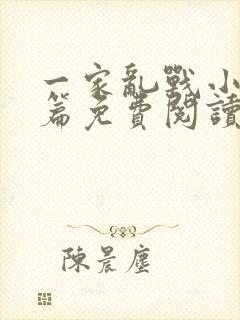 一家亂戰小
篇免費閱讀
陳晨塵